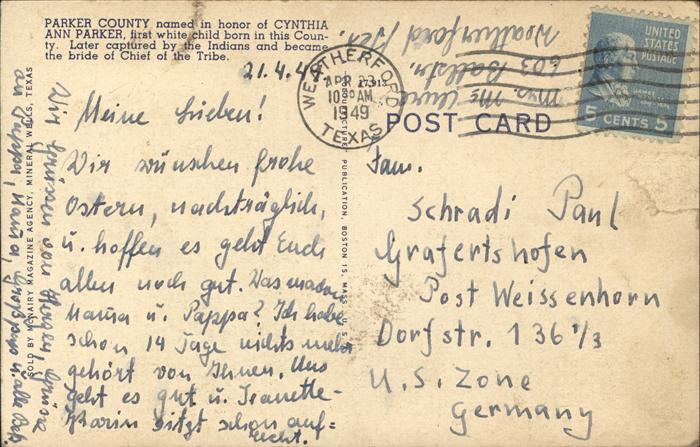 PARKER COUNTY named in honor of CYNTHIA
ANN PARKER, first white child born in this Coun-
ty. Later captured by the Indians and became
the bride of Chief of the Tribe.
21.4.49
Meine Lieben!
Wir wünschen frohe
Ostern, nachträglich,
u. hoffen es geht Euch
allen noch gut. Was machen
Mama u. Pappa? Ich habe
schon 14 Tage nichts mehr
gehört von Ihnen. Uns
geht es gut u. Jeanette-
Karin sitzt schon auf-
recht.
Wir grüssen von Herzen
an Pappa, Mama,
SOLD BY McNAIRY MAGAZINE AGENCY, MINERAL WELLS, TEXAS
PUBLICATION, BOSTON 15, MASS., U.S.A.
Mrs. McClure
603 Ballstr.
Weatherford Tex.
WEATHERFORD
APR 23
10 30 AM
1949
TEXAS
UNITED
STATES
POSTAGE
5 CENTS 5
POST CARD
Fam.
Schradi Paul
Grafertshofen
Post Weissenhorn
Dorfstr. 136 1/3
U.S. Zone
Germany